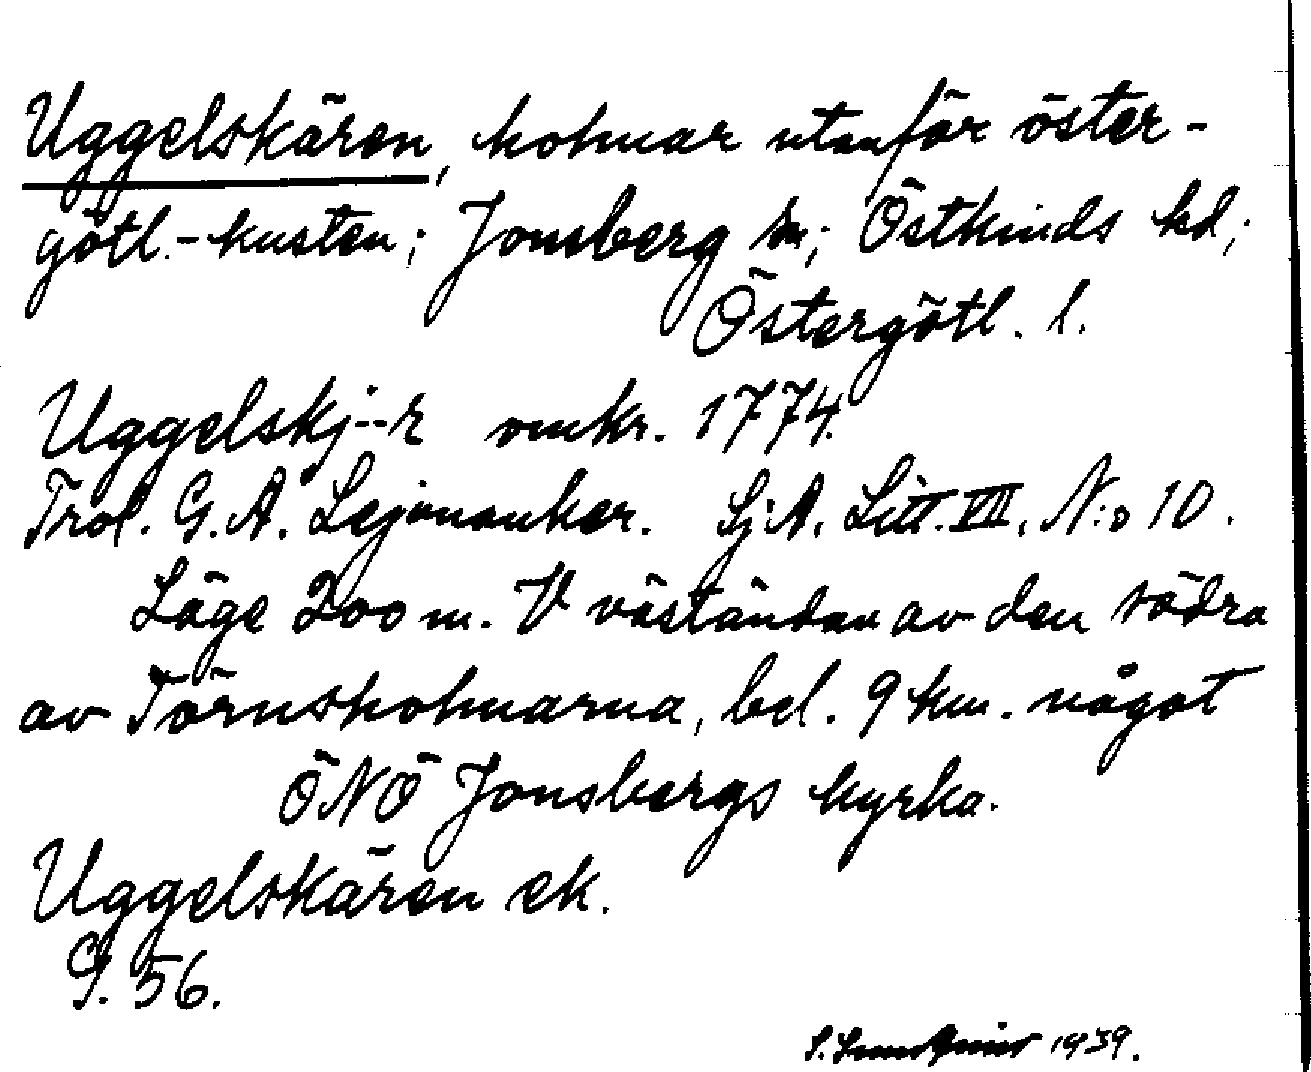 Uggelskären, holmar utanför öster-
götl.-kusten; Jonsberg sn; Östkinds hd;
Östergötl. l.
Uggelskj--r omkr. 1774.
Trol. G. A. Lejonanker. Sj. A. Litt. VII. N:o 10.
Läge 200 m. V väständan av den södra
av Törnsholmarna, bel. 9 km. något
ÖNÖ Jonsbergs kyrka.
Uggelskären ek.
S. 56.
S. 1939.